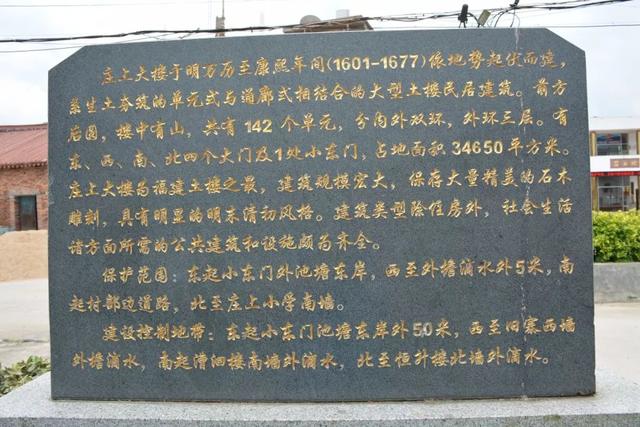 庄上大楼于明万历至康熙年间(1601-1677)依地势起伏而建，
系生土夯筑的单元式与通廊式相结合的大型土楼民居建筑。前方
后圆，楼中有山，共有142个单元，分内外双环，外环三层。有
东、西、南、北四个大门及1处小东门，占地面积34650平方米。
庄上大楼为福建土楼之最，建筑规模宏大，保存大量精美的石木
雕刻，具有明显的明末清初风格。建筑类型除住房外，社会生活
诸方面所需的公共建筑和设施颇为齐全。
保护范围：东起小东门外池塘东岸，西至外檐滴水外5米，南
起村部边道路，北至庄上小学南墙。
建设控制地带：东起小东门池塘东岸外50米，西至旧寨西墙
外檐滴水，南起漕洄楼南墙外滴水，北至恒升楼北墙外滴水。